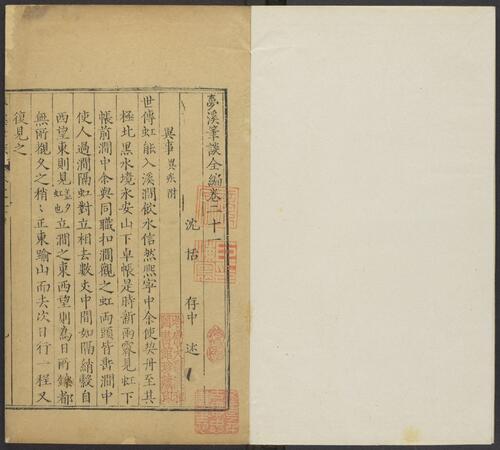 夢溪筆談全編卷二十一
沈括 存中 述
異事 異疾附
世傳虹能入溪澗飲水信然熙寧中余使契丹至其
極北黑水境永安山下卓帳是時新雨霽見虹下
帳前澗中余與同職扣澗觀之虹兩頭皆垂澗中
使人過澗隔虹對立相去數丈中間如隔綃縠自
西望東則見蓋夕虹也立澗之東西望則為日所鑠都
無所覩久之稍〻正東踰山而去次日行一程又
復見之